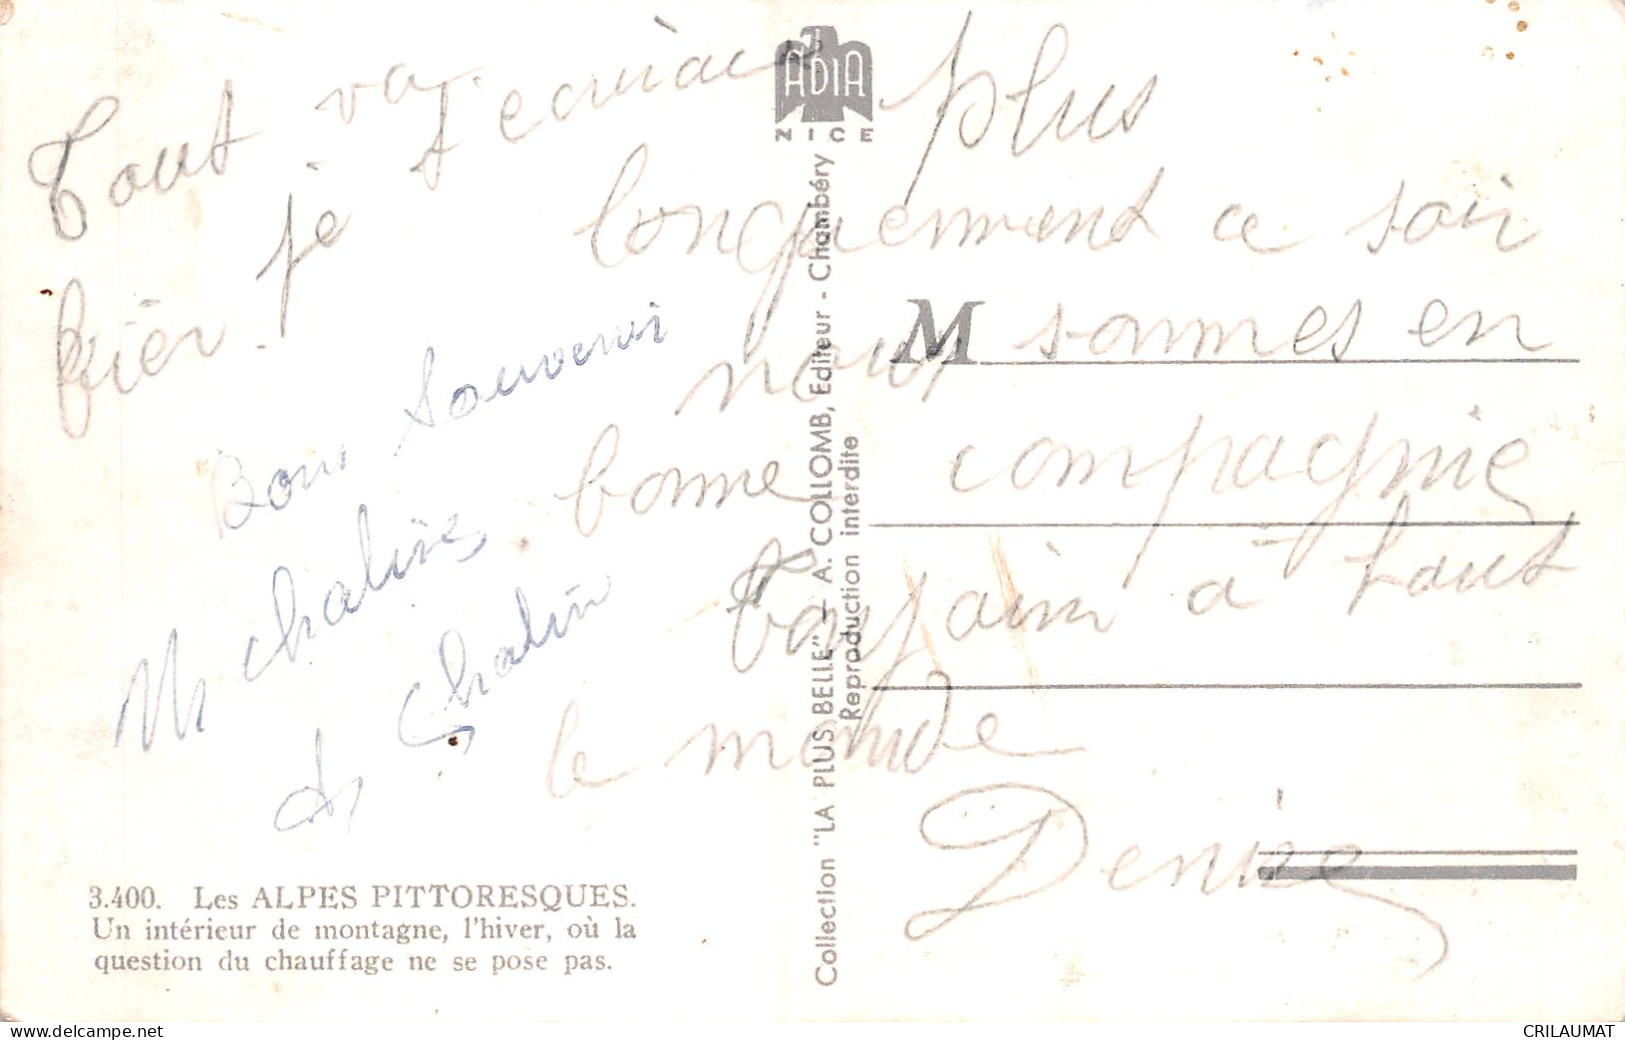 Tout va
bien. je t'ecrirais plus
longuement ce soir
nous sommes en
bonne compagnie
Bonjour à tout
le monde
Denise
Bon souvenir
M Chalin
Chalin
ADIA
NICE
M
Collection "LA PLUS BELLE" — A. COLLOMB, Editeur - Chambéry
Reproduction interdite
3.400. Les ALPES PITTORESQUES.
Un intérieur de montagne, l'hiver, où la
question du chauffage ne se pose pas.
www.delcampe.net
CRILAUMAT